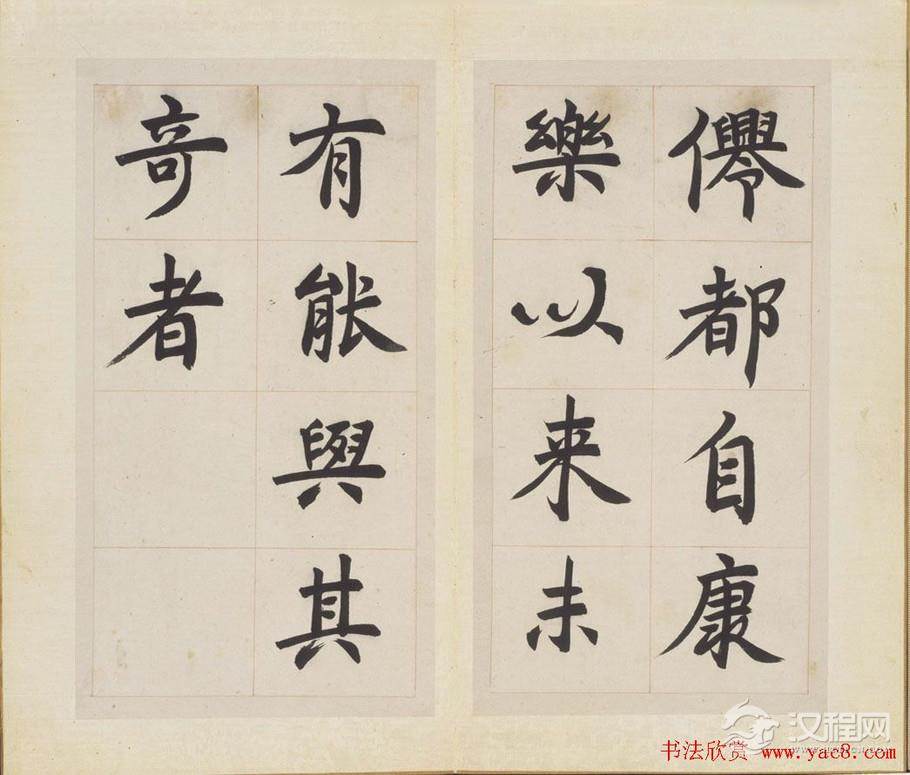 僊都自康
樂以来未
有能與其
竒者
汉程网
书法欣赏 www.yac8.com